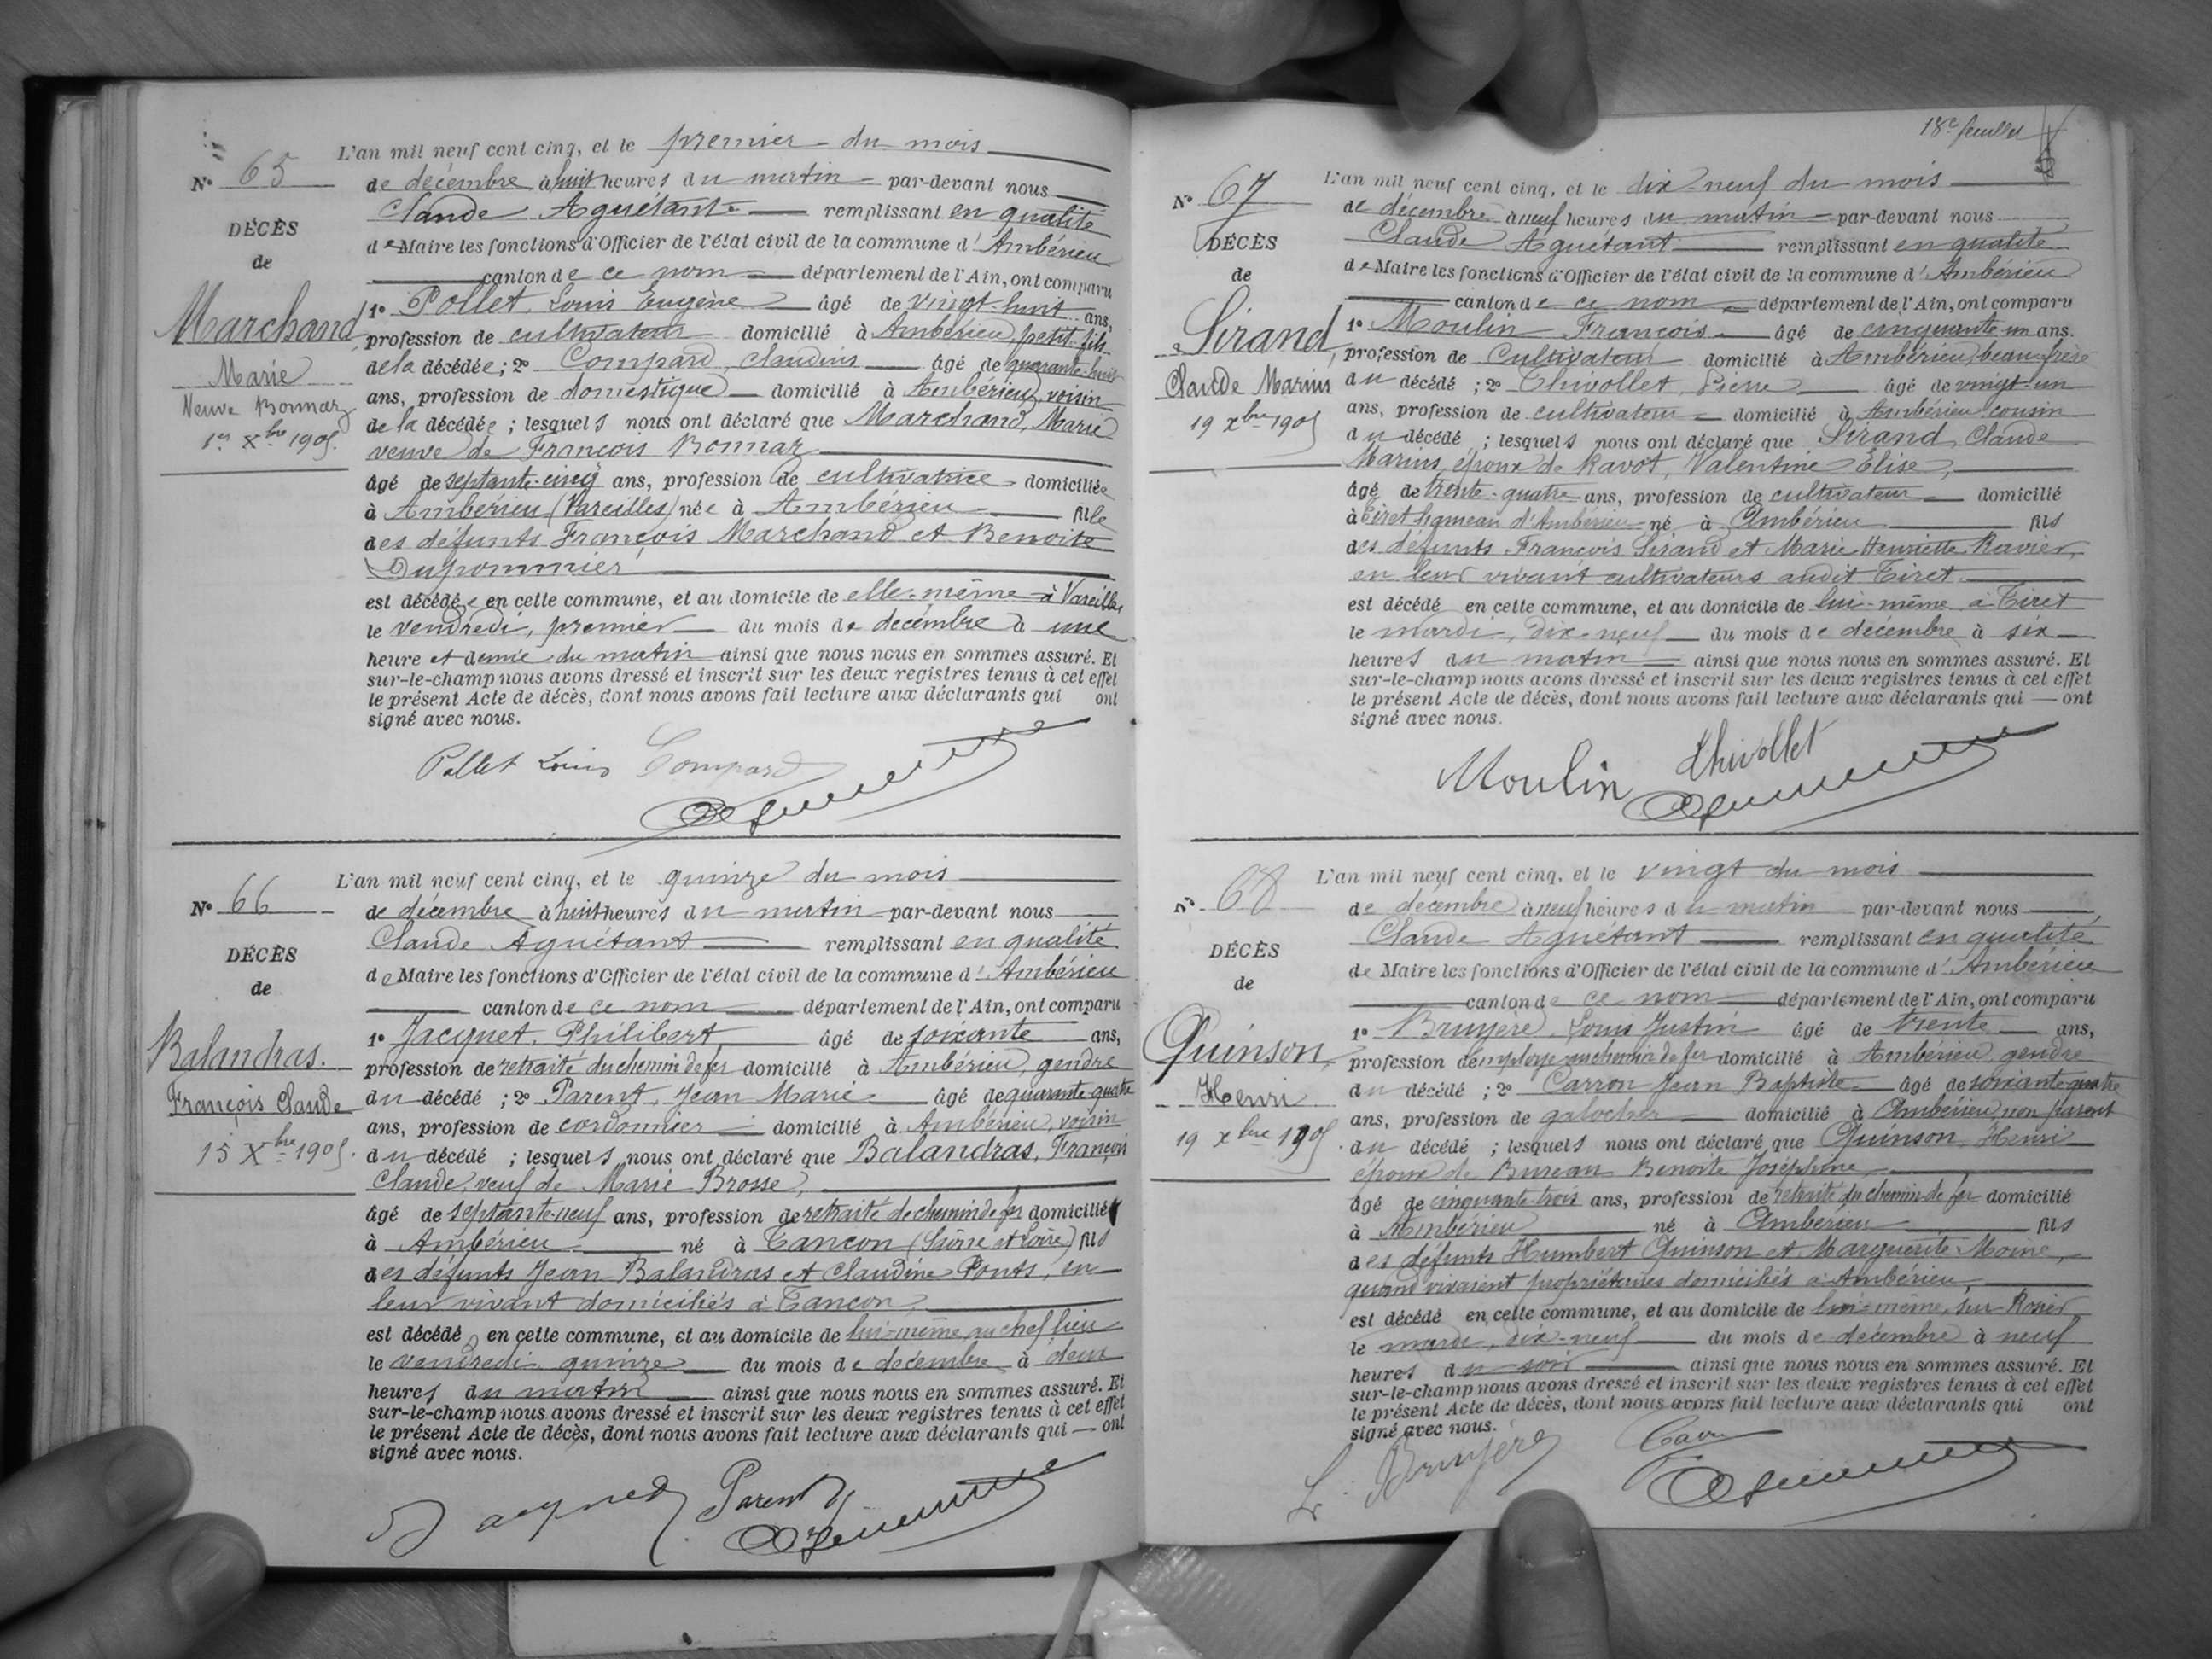 N° 65
DÉCÈS
de
Marchand
Marie
Veuve Bonnaz
1er Xbre 1905.
L'an mil neuf cent cinq, et le premier du mois
de décembre à huit heures du matin par-devant nous
Claude Aguétant remplissant en qualité
de Maire les fonctions d'Officier de l'état civil de la commune d'Ambérieu
canton de ce nom département de l'Ain, ont comparu
1° Pollet, Louis Eugène âgé de vingt-huit ans,
profession de cultivateur domicilié à Ambérieu, petit-fils
de la décédée ; 2° Compard, Claudius âgé de quarante-huit
ans, profession de domestique domicilié à Ambérieu, voisin
de la décédée ; lesquels nous ont déclaré que Marchand, Marie
veuve de François Bonnaz
âgé de septante-cinq ans, profession de cultivatrice domiciliée
à Ambérieu (Vareilles) née à Ambérieu fille
des défunts François Marchand et Benoite
Dupommier
est décédée en cette commune, et au domicile de elle-même à Vareilles
le vendredi, premier du mois de décembre à une
heure et demie du matin ainsi que nous nous en sommes assuré. Et
sur-le-champ nous avons dressé et inscrit sur les deux registres tenus à cet effet
le présent Acte de décès, dont nous avons fait lecture aux déclarants qui ont
signé avec nous.
Pollet Louis Compard
N° 66
DÉCÈS
de
Balandras.
François Claude
15 Xbre 1905.
L'an mil neuf cent cinq, et le quinze du mois
de décembre à huit heures du matin par-devant nous
Claude Aguétant remplissant en qualité
de Maire les fonctions d'Officier de l'état civil de la commune d'Ambérieu
canton de ce nom département de l'Ain, ont comparu
1° Jacquet, Philibert, âgé de soixante ans,
profession de retraité du chemin de fer domicilié à Ambérieu, gendre
du décédé ; 2° Parent, Jean Marie âgé de quarante-quatre
ans, profession de cordonnier domicilié à Ambérieu, voisin
du décédé ; lesquels nous ont déclaré que Balandras, François
Claude, veuf de Marie Brosse,
âgé de septante-neuf ans, profession de retraité de chemin de fer domicilié
à Ambérieu né à Tancon (Saône et Loire) fils
des défunts Jean Balandras et Claudine Ponts, en
leur vivant domiciliés à Tancon,
est décédé en cette commune, et au domicile de lui-même, au chef lieu
le vendredi quinze du mois de décembre à deux
heures du matin ainsi que nous nous en sommes assuré. Et
sur-le-champ nous avons dressé et inscrit sur les deux registres tenus à cet effet
le présent Acte de décès, dont nous avons fait lecture aux déclarants qui ont
signé avec nous.
Jacquet Parent
18e feuillet
N° 67
DÉCÈS
de
Sirand,
Claude Marius
19 xbre 1905
L'an mil neuf cent cinq, et le dix-neuf du mois
de décembre à neuf heures du matin par-devant nous
Claude Aguétant remplissant en qualité
de Maire les fonctions d'Officier de l'état civil de la commune d'Ambérieu
canton de ce nom département de l'Ain, ont comparu
1° Moulin François âgé de cinquante-un ans.
profession de Cultivateur domicilié à Ambérieu, beau-frère
du décédé ; 2° Thivollet, Pierre âgé de vingt-un
ans, profession de cultivateur domicilié à Ambérieu cousin
du décédé ; lesquels nous ont déclaré que Sirand, Claude
Marius, époux de Ravot, Valentine Élise,
âgé de trente-quatre ans, profession de cultivateur domicilié
à Tiret hameau d'Ambérieu né à Ambérieu fils
des défunts François Sirand et Marie Henriette Ravier,
en leur vivant cultivateurs audit Tiret
est décédé en cette commune, et au domicile de lui-même à Tiret
le mardi, dix-neuf du mois de décembre à six
heures du matin ainsi que nous nous en sommes assuré. Et
sur-le-champ nous avons dressé et inscrit sur les deux registres tenus à cet effet
le présent Acte de décès, dont nous avons fait lecture aux déclarants qui ont
signé avec nous.
Moulin Thivollet
N° 68
DÉCÈS
de
Quinson,
Henri
19 xbre 1905.
L'an mil neuf cent cinq, et le vingt du mois
de décembre à neuf heures du matin par-devant nous
Claude Aguétant remplissant en qualité
de Maire les fonctions d'Officier de l'état civil de la commune d'Ambérieu
canton de ce nom département de l'Ain, ont comparu
1° Bruyère, Louis Justin âgé de trente ans,
profession d'employé au chemin de fer domicilié à Ambérieu, gendre
du décédé ; 2° Carron Jean Baptiste âgé de soixante-quatre
ans, profession de galocher domicilié à Ambérieu non parent
du décédé ; lesquels nous ont déclaré que Quinson, Henri
époux de Bureau Benoite Joséphine,
âgé de cinquante-trois ans, profession de retraité du chemin de fer domicilié
à Ambérieu né à Ambérieu fils
des défunts Humbert Quinson et Marguerite Moine,
quand vivaient propriétaires domiciliés à Ambérieu,
est décédé en cette commune, et au domicile de lui-même, sur Rosier,
le mardi, dix-neuf du mois de décembre à neuf
heures du soir ainsi que nous nous en sommes assuré. Et
sur-le-champ nous avons dressé et inscrit sur les deux registres tenus à cet effet
le présent Acte de décès, dont nous avons fait lecture aux déclarants qui ont
signé avec nous.
L. Bruyère